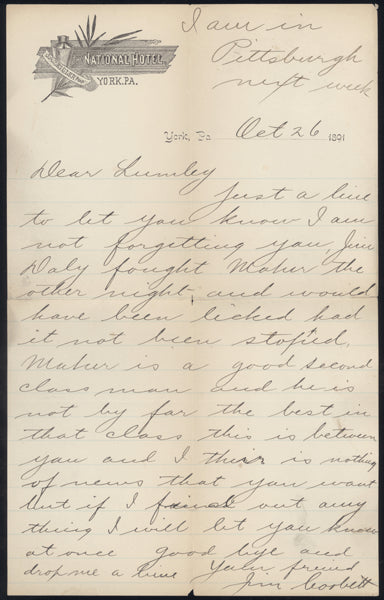 I am in
Pittsburgh
next week
THE NATIONAL HOTEL
YORK, PA.
York, Pa Oct 26 1891
Dear Lumley
Just a line
to let you know I am
not forgetting you, Jim
Daly fought Maher the
other night and would
have been licked had
it not been stoped,
Maher is a good second
class man and he is
not by far the best in
that class this is between
you and I their is nothing
of news that you want
but if I find out any
thing I will let you know
at once good bye and
drop me a line Your friend
Jim Corbett